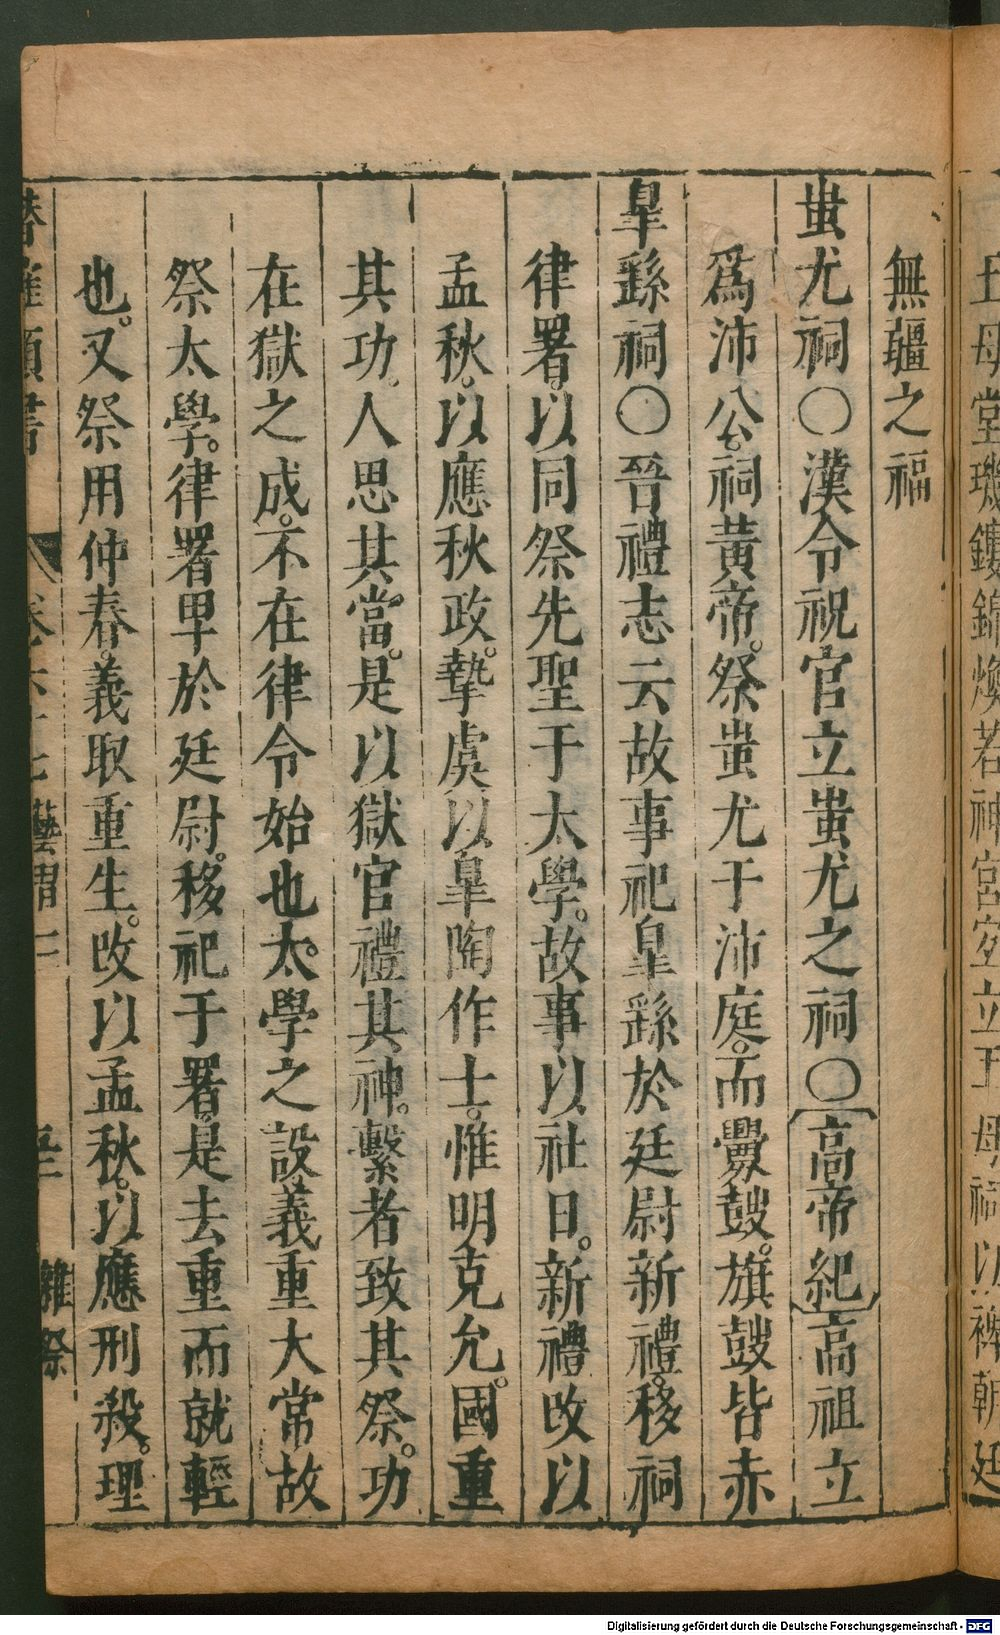 丘母堂璣鏤錦煥若神宮室立王母祠以裨朝廷
無疆之福
蚩尤祠〇漢令祝官立蚩尤之祠〇〔高帝紀〕高祖立
爲沛公。祠黄帝。祭蚩尤于沛庭。而釁鼓。旗鼓皆赤
臯繇祠〇晉禮志云故事祀臯繇於廷尉新禮。移祠
律署。以同祭先聖于太學。故事以社日。新禮改以
孟秋。以應秋政。摯虞以臯陶作士。惟明克允。國重
其功。人思其當。是以獄官禮其神。繫者致其祭。功
在獄之成。不在律令始也。太學之設義重大常故
祭太學。律署卑於廷尉。移祀于署。是去重而就輕
也。又祭用仲春。義取重生。改以孟秋。以應刑殺。理
卷六十七 雜祭
Digitalisierung gefördert durch die Deutsche Forschungsgemeinschaft - DFG